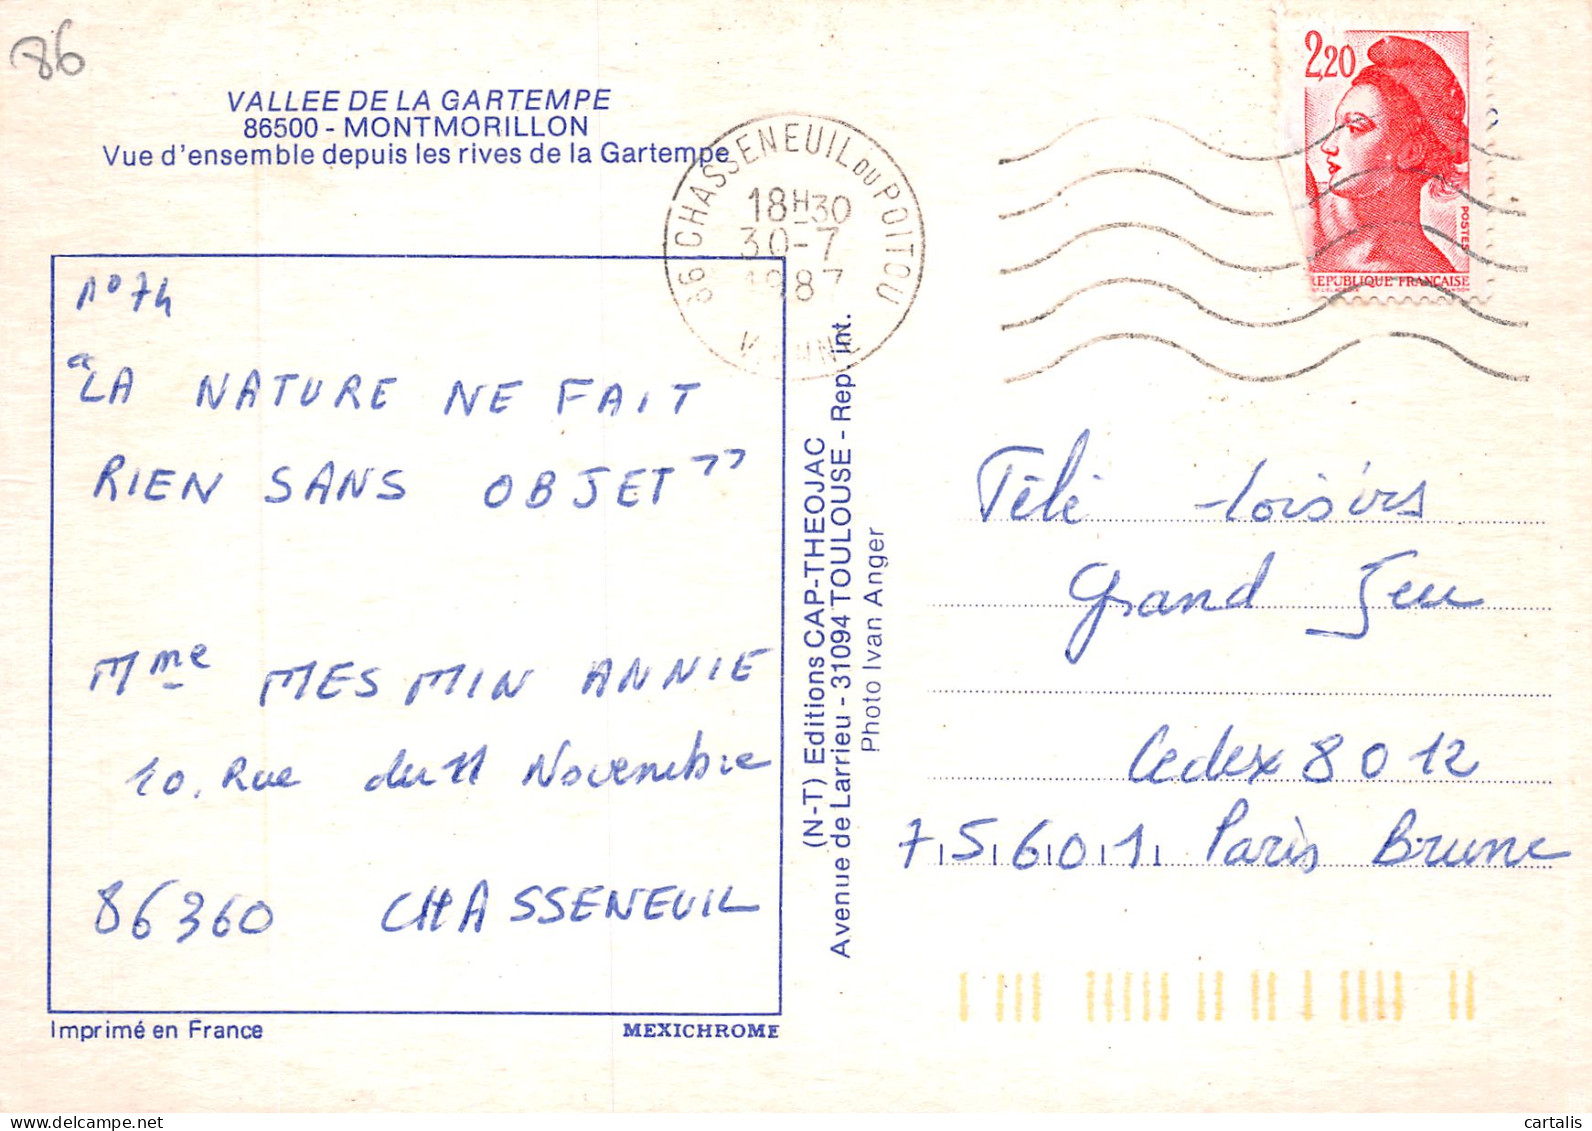 86
VALLEE DE LA GARTEMPE
86500 - MONTMORILLON
Vue d'ensemble depuis les rives de la Gartempe
86 CHASSENEUIL DU POITOU
18H30
30-7
1987
VIENNE
2,20
POSTES
REPUBLIQUE FRANÇAISE
n° 74
"LA NATURE NE FAIT
RIEN SANS OBJET"
Mme MESMIN ANNIE
10. Rue du 11 Novembre
86360 CHASSENEUIL
(N-T) Editions CAP-THEOJAC
Avenue de Larrieu - 31094 TOULOUSE - Rep. int.
Photo Ivan Anger
Télé-loisirs
Grand Jeu
Cedex 8012
75601 Paris Brune
Imprimé en France
MEXICHROME
delcampe.net
cartalis